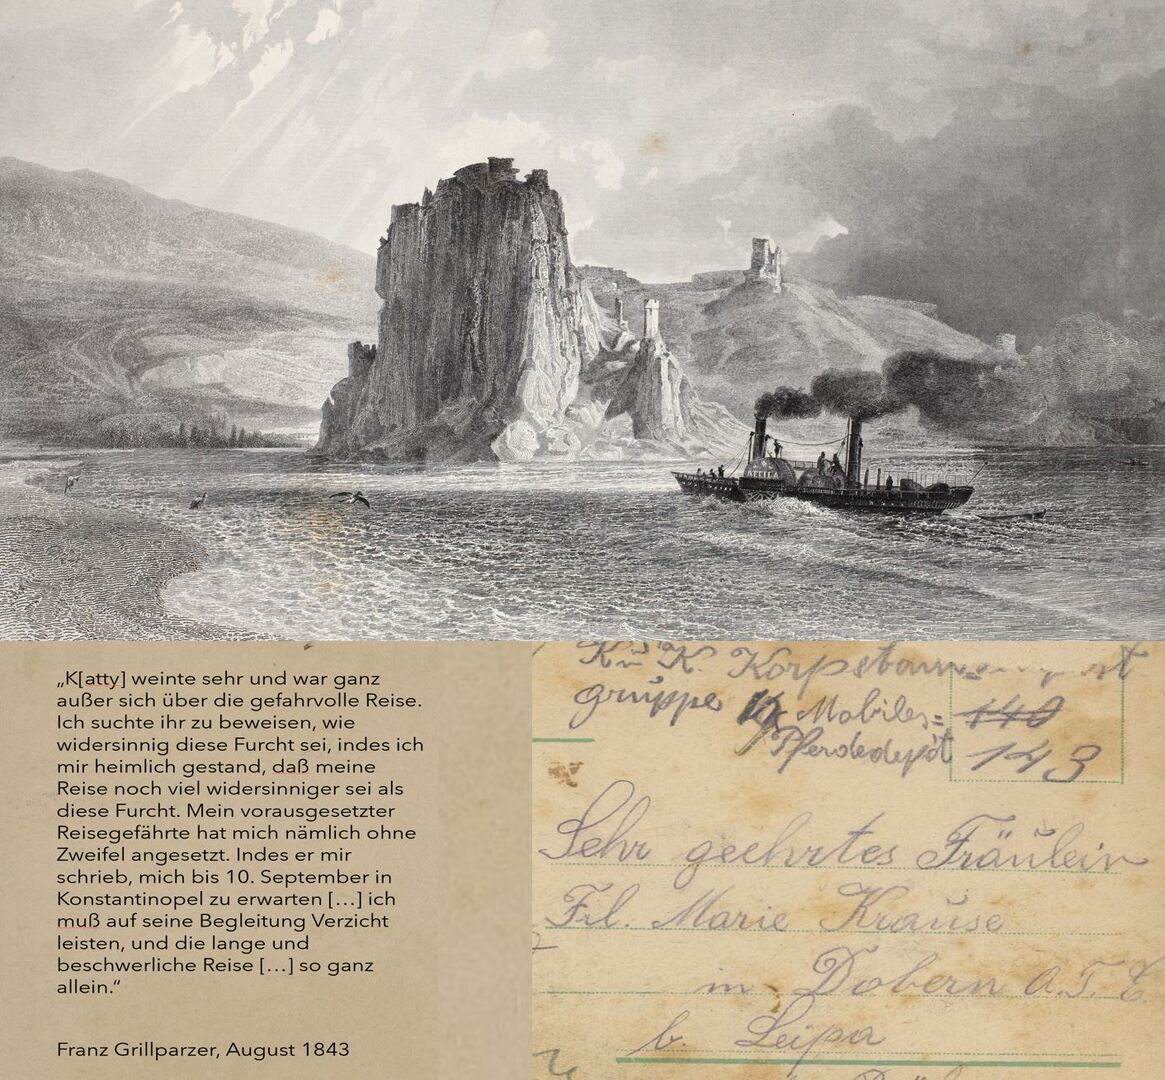 ATTILA
„K[atty] weinte sehr und war ganz
außer sich über die gefahrvolle Reise.
Ich suchte ihr zu beweisen, wie
widersinnig diese Furcht sei, indes ich
mir heimlich gestand, daß meine
Reise noch viel widersinniger sei als
diese Furcht. Mein vorausgesetzter
Reisegefährte hat mich nämlich ohne
Zweifel angesetzt. Indes er mir
schrieb, mich bis 10. September in
Konstantinopel zu erwarten […] ich
muß auf seine Begleitung Verzicht
leisten, und die lange und
beschwerliche Reise […] so ganz
allein.“
Franz Grillparzer, August 1843
K. u. K.
gruppe Mobiles= 140
Pferdedepôt 143
Sehr geehrtes Fräulein
Frl. Marie Krause
in Dobern a.T.E.
b. Leipa